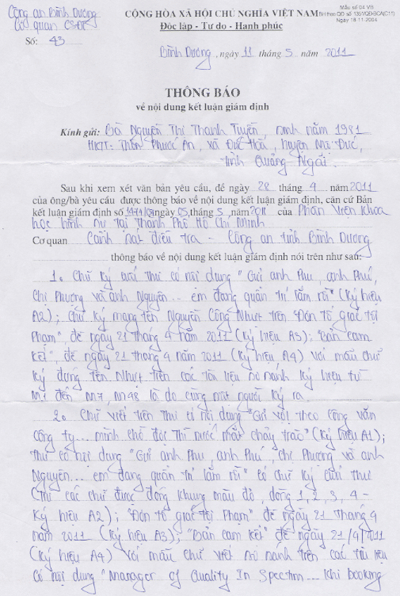 Công an Bình Dương CỘNG HÒA XÃ HỘI CHỦ NGHĨA VIỆT NAM Mẫu số 04 VS
Cơ quan CSĐT Độc lập - Tự do - Hạnh phúc
Số: 43 Bình Dương, ngày 11 tháng 5 năm 2011
THÔNG BÁO
về nội dung kết luận giám định
Kính gửi: Bà Nguyễn Thị Thanh Tuyền, sinh năm 1981
HKTT: Thôn Phước An, xã Đức Hòa, huyện Mộ Đức,
tỉnh Quảng Ngãi
Sau khi xem xét văn bản yêu cầu, đề ngày 28 tháng 4 năm 2011
của ông/bà yêu cầu được thông báo về nội dung kết luận giám định, căn cứ Bản
kết luận giám định số ngày 05 tháng 5 năm 2011 của Phân Viện Khoa
học hình sự tại Thành Phố Hồ Chí Minh
Cơ quan Cảnh sát điều tra - Công an tỉnh Bình Dương
thông báo về nội dung kết luận giám định nói trên như sau:
1. Chữ ký dưới thư có nội dung "Gửi anh Phu, anh Phú,
chị Phương và anh Nguyên... em đang quẩn trí lắm rồi" (Ký hiệu
A2); Chữ ký mang tên Nguyễn Công Nhựt trên "Đơn tố giác tội
phạm", đề ngày 21 tháng 4 năm 2011 (Ký hiệu A3); "Bản cam
kết", đề ngày 21 tháng 4 năm 2011 (Ký hiệu A4) với mẫu chữ
ký đứng tên Nhựt trên các tài liệu so sánh ký hiệu từ
M1 đến M7, M48 là do cùng một người ký ra.
2. Chữ viết trên thư có nội dung "Gửi với theo công văn
công ty... mình chờ đợi thì nước mắt chảy trắc" (Ký hiệu A1);
thư có nội dung "Gửi anh Phu, anh Phú, chị Phương và anh
Nguyên... em đang quẩn trí lắm rồi" có chữ ký dưới thư
(Trừ các chữ được đóng khung màu đỏ, dòng 1, 2, 3, 4 -
Ký hiệu A2); "Đơn tố giác tội phạm" đề ngày 21 tháng 4
năm 2011 (Ký hiệu A3); "Bản cam kết" đề ngày 21/4/2011
(Ký hiệu A4) với mẫu chữ viết so sánh trên các tài liệu
có nội dung "Manager of Quality In Spection... Khi booking